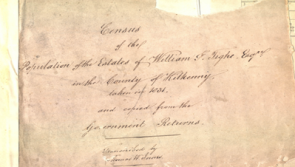 Census
of the
Population of the Estates of William F. Tighe Esqr.
in the County of Kilkenny
taken in 1831.
and copied from the
Government Returns.
James